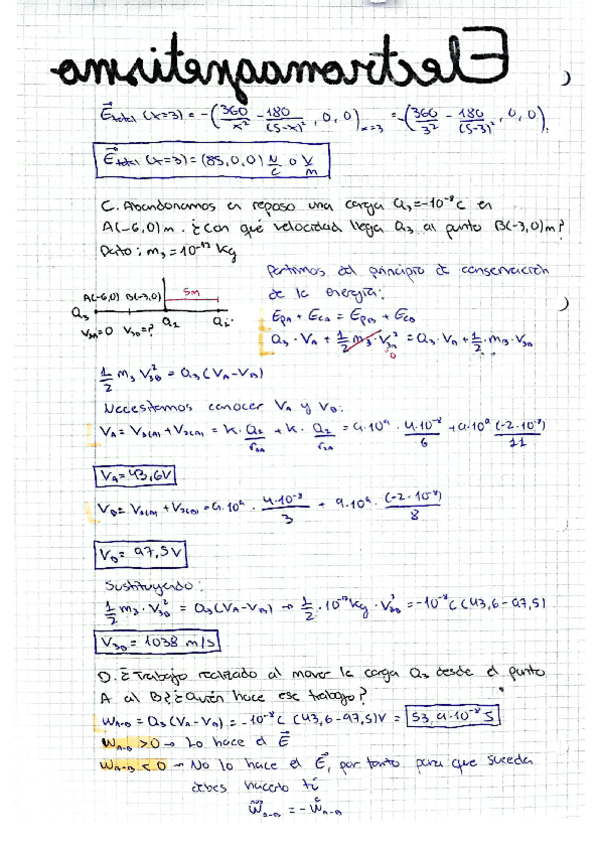 Electromagnetismo
E⃗total (x=3) = -(360/x² - 180/(5-x)², 0, 0)x=3 = -(360/3² - 180/(5-3)², 0, 0).
E⃗total (x=3) = (85,0,0) N/C o V/m
C. Abandonamos en reposo una carga Q₃=-10⁻⁸C en
A(-6,0)m. ¿Con qué velocidad llega Q₃ al punto B(-3,0)m?
Dato: m₃=10⁻¹² Kg
Partimos del principio de conservación
de la energía:
5m
A(-6,0) B(-3,0)
Q₃ Q₁ Q₂
V₃A=0 V₃B=?
EpA + EcA = EpB + EcB
Q₃·VA + 1/2 m₃·V₃A² = Q₃·VB + 1/2·m₃·V₃B
0
1/2 m₃ V₃B² = Q₃(VA-VB)
Necesitamos conocer VA y VB:
VA = V₁(A) + V₂(A) = K·Q₁/r₁A + K·Q₂/r₂A = 9·10⁹·4·10⁻⁸/6 + 9·10⁹(-2·10⁻⁸)/11
VA=43,6V
VB= V₁(B) + V₂(B) = 9·10⁹·4·10⁻⁸/3 + 9·10⁹·(-2·10⁻⁸)/8
VB= 97,5V
Sustituyendo:
1/2 m₃·V₃B² = Q₃(VA-VB) → 1/2·10⁻¹²Kg·V₃B² = -10⁻⁸C(43,6-97,5)
V₃B = 1038 m/s
D. ¿Trabajo realizado al mover la carga Q₃ desde el punto
A al B? ¿Quién hace ese trabajo?
WA→B = Q₃(VA-VB) = -10⁻⁸C (43,6-97,5)V = 53,9·10⁻⁸J
WA→B >0 → Lo hace el E⃗
WA→B <0 → No lo hace el E⃗, por tanto para que suceda
debes hacerlo tú